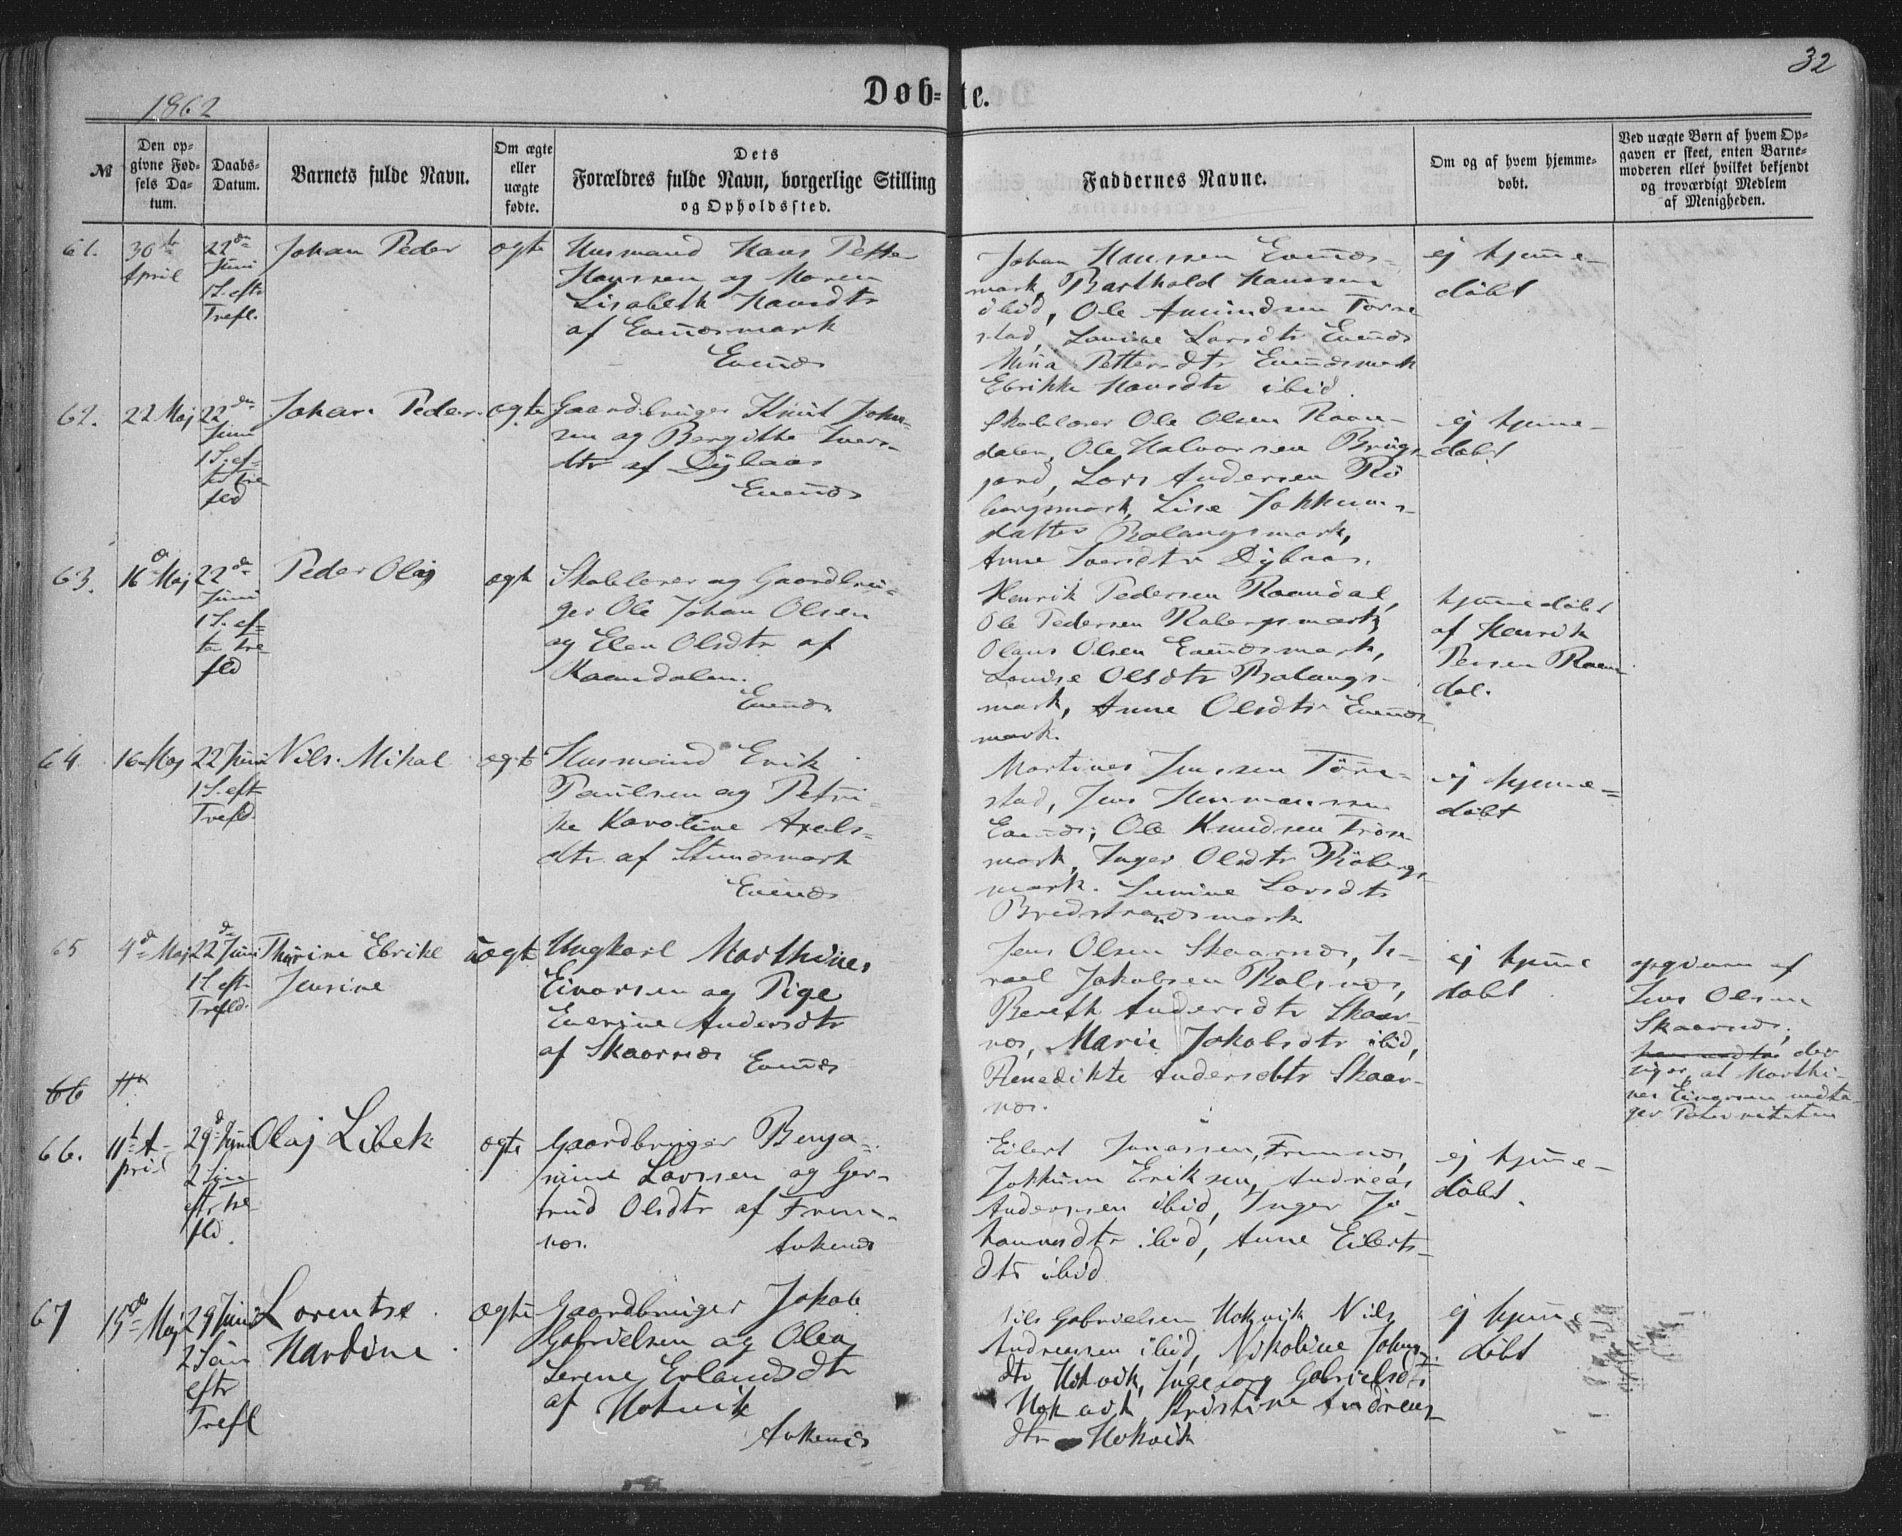 1862
Døb=te.
32
№
Den op-
givne Fød-
sels Da-
tum.
Daabs-
Datum.
Barnets fulde Navn.
Om ægte
eller
uægte
fødte.
Dets
Forældres fulde Navn, borgerlige Stilling
og Opholdssted.
Faddernes Navne.
Om og af hvem hjemme-
døbt.
Ved uægte Børn af hvem Op-
gaven er skeet, enten Barne-
moderen eller hvilket bekjendt
og troværdigt Medlem
af Menigheden.
61.
30te
April
22de
Juni
1 S. eftr
Trefl.
Johan Peder
ægte
Husmand Hans Petter
Hanssen og Maren
Lisabeth Hansdtr
af Evenæsmark
Evenæs
Johan Hanssen Evenæs-
mark, Barthold Hanssen
ibid, Ole Amundsen Tørre
stad, Lovise Larsdtr Evenæs
Nina Pettersdtr Evenæsmark
Ebrikke Hansdtr ibid.
ej hjemme-
døbt
62.
22 Maj
22de
Juni
1 S. ef-
ter tre
fld
Johan Peder
ægte
Gaardbruger Knut John-
sen og Bergitte Iver-
dtr af Dybaas
Evenæs
Skolelærer Ole Olsen Raan-
dalen, Ole Halvorsen Bruge
jord, Lars Andersen Rø
bergsmark, Lise Jokkums-
datter Balangsmark,
Anne Iversdtr Dybaas.
ej hjemme-
døbt
63.
16de Maj
22de
Juni
1 S. ef=
ter tre
fld
Peder Olaj
ægte
Skolelærer og Gaardbru-
ger Ole Johan Olsen
og Elen Olsdtr af
Raandalen.
Evenæs
Henrik Pedersen Raandal,
Ole Pedersen Robergsmark,
Olaus Olsen Evenæsmark,
Lovise Olsdtr Balangs-
mark, Anne Olsdtr Evenæs
mark.
hjemmedøbt
af Henrik
Persen Raan
dal.
64
16 Maj
22 Juni
1 S. eft
Trefld
Nils Mikal
ægte
Husmand Erik
Paulsen og Petri-
ke Karoline Axels-
dtr af Stunesmark
Evenæs
Martines Jenssen Tørre-
stad, Jens Hermanssen
Evenæs, Ole Knudsen Trøse
mark, Inger Olsdtr Røbergs
mark. Larsdtr
Bredstrandsmark
ej hjemme=
døbt
65
4de Maj
22de Juni
1 S. eft
Trefld.
Thurine Ebrike
Jensine
uægte
Ungkarl Marthines
Einarsen og Pige
Everine Andersdtr
af Skaarnæs
Evenæs
Jens Olsen Skaarnæs, Is-
rael Jakobsen Balsnæs,
Bereth Andersdtr Skaar-
næs, Marie Jakobsdtr ibid,
Benedikte Andersdtr Skaar-
næs.
ej hjemme
døbt
opgiven af
Jens Olsen
Skaarnæs,
der
siger, at Marthi-
nes Einarsen vedta-
ger Paterniteten
66
11te
66.
11te A-
pril
29de Juni
2 Søn
eftr tre
fld.
Olaj Libek
ægte
Gaardbruger Benja-
mine Larssen og Ger-
trud Olsdtr af Fremn-
næs.
Ankenes
Eilert Jonassen, Fremnæs,
Jokkum Eriksen, Andreas
Andersen ibid, Inger Jo-
hannesdtr ibid, Anne Eilerts-
dtr ibid
ej hjemme-
døbt.
67
15de Maj
29 Juni
2 Søn
eftr
Trefl
Lorentse
Hardine
ægte
Gaardbruger Jakob
Gabrielsen og Olea
Serene Erlandsdtr
af Hokvik
Ankenes
Nils Gabrielsen Hokvik Nils
Andreassen ibid, Nikoline Johns
dtr Hokvik, Ingeborg Gabrielsdtr
Hokvik Kristine Andreas-
dtr Hokvik
ej hjemme
døbt